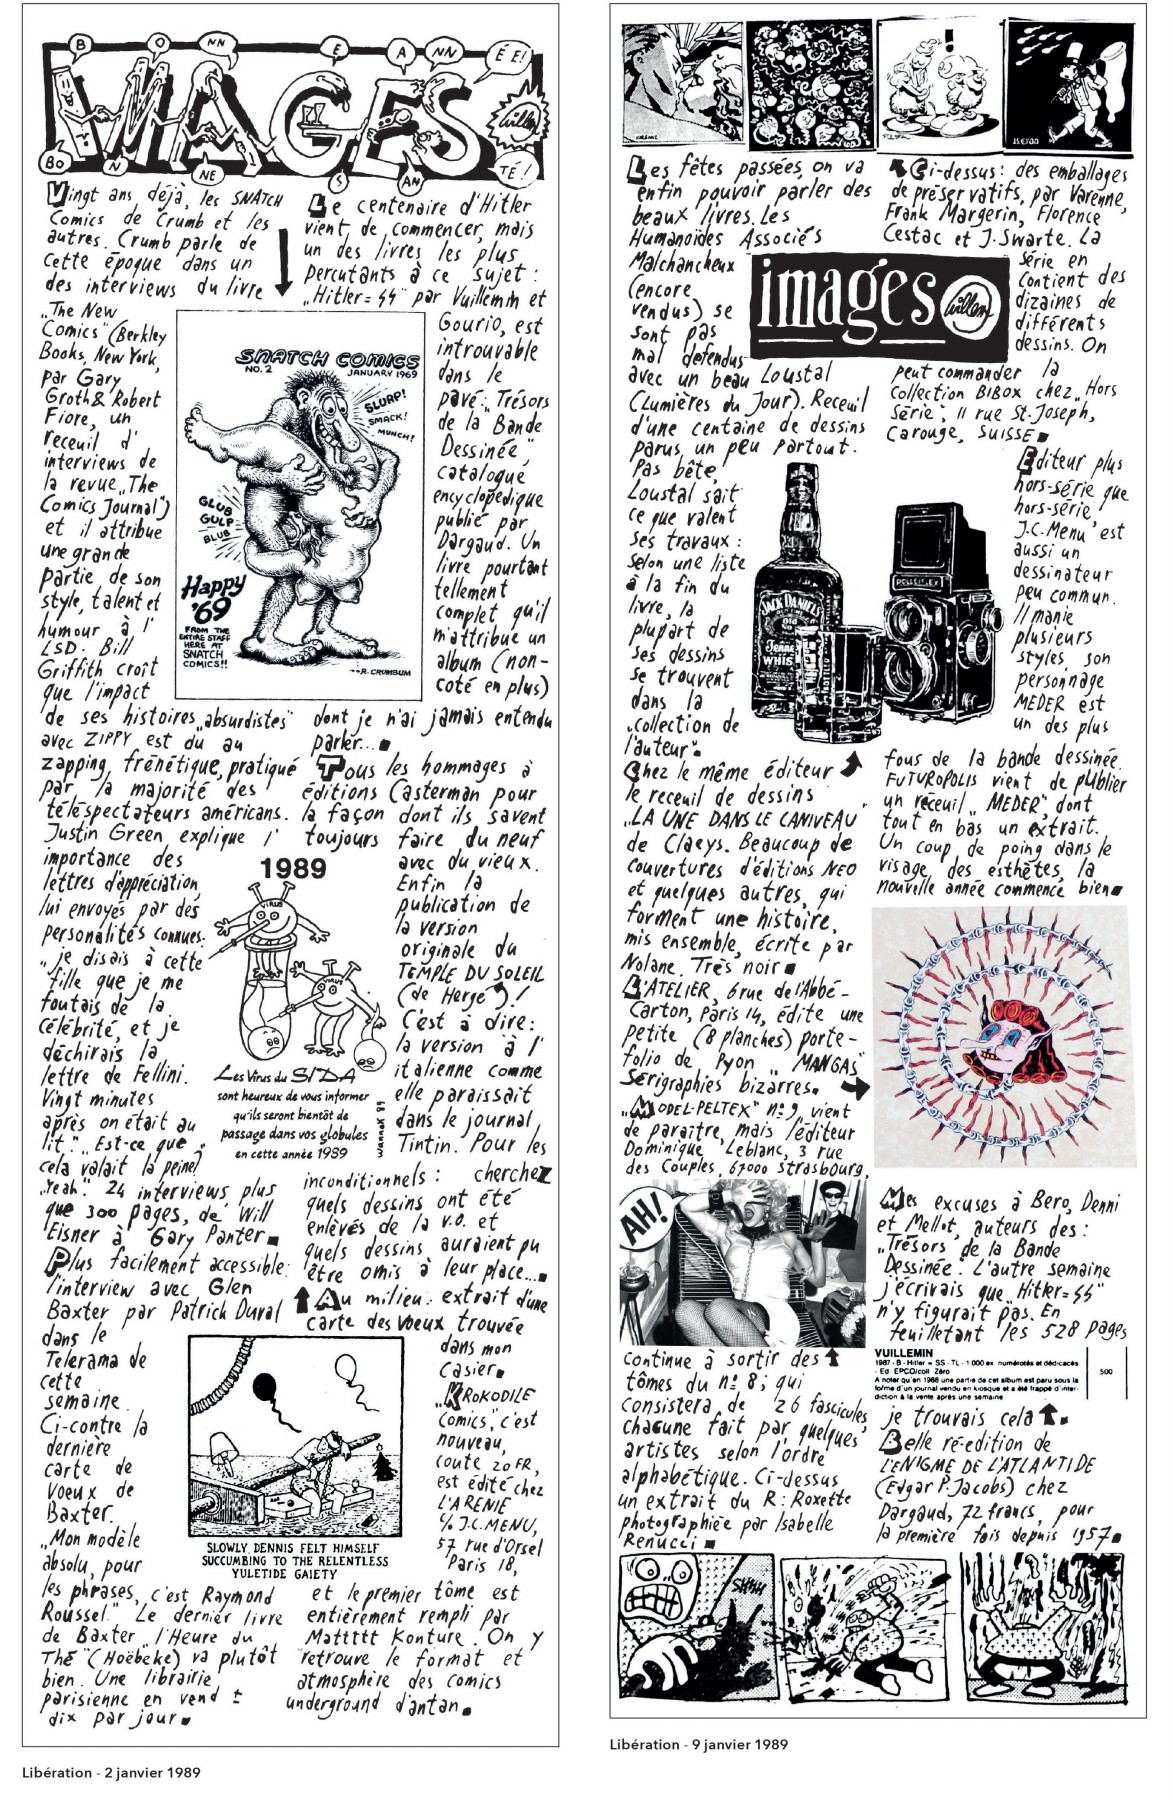 BONNE ANNÉE!
IMAGES
Willem
BONNE SANTÉ!
Vingt ans déjà, les SNATCH
Comics de Crumb et les
autres. Crumb parle de
cette époque dans un
des interviews du livre
„The New
Comics" (Berkley
Books, New York,
par Gary
Groth & Robert
Fiore, un
receuil d'
interviews de
la revue „The
Comics Journal")
et il attribue
une grande
partie, de son
style, talent et
humour à l'
LSD. Bill
Griffith croît
que l'impact
de ses histoires „absurdistes"
avec ZIPPY est du au
zapping, frénétique, pratiqué
par la majorité des
téléspectateurs américans.
Justin Green explique l'
importance des
lettres d'appréciation
lui envoyés par des
personalités connues:
„je disais à cette
fille que je me
foutais de la
célébrité, et je
déchirais la
lettre de Fellini.
Vingt minutes
après on était au
lit." „Est-ce que
cela valait la peine?"
„Yeah". 24 interviews plus
que 300 pages, de Will
Eisner à Gary Panter.
Plus facilement accessible:
l'interview avec Glen
Baxter par Patrick Duval
dans le
Telerama de
cette
semaine.
Ci-contre la
dernière
carte de
voeux de
Baxter.
„Mon modèle
absolu, pour
les phrases, c'est Raymond
Roussel." Le dernier livre
de Baxter „l'Heure du
Thé" (Hoëbeke) va plutôt
bien. Une librairie
parisienne en vend ±
dix par jour.
Le centenaire d'Hitler
vient de commencer, mais
un des livres les plus
percutants à ce sujet:
„Hitler=SS" par Vuillemin et
Gourio, est
introuvable
dans le
pavé: „Trésors
de la Bande
Dessinée",
catalogue
encyclopédique
publié par
Dargaud. Un
livre pourtant
tellement
complet qu'il
m'attribue un
album (non-
coté en plus)
dont je n'ai jamais entendu
parler...
Tous les hommages à
éditions Casterman pour
la façon dont ils savent
toujours faire du neuf
avec du vieux.
Enfin la
publication de
la version
originale du
TEMPLE DU SOLEIL
(de Hergé)!
C'est à dire:
la version à l'
italienne comme
elle paraissait
dans le journal
Tintin. Pour les
inconditionnels: cherchez
quels dessins ont été
enlevés de la v.o. et
quels dessins auraient pu
être omis à leur place...
Au milieu: extrait d'une
carte des voeux trouvée
dans mon
casier.
„KROKODILE
Comics", c'est
nouveau,
coute 20 FR,
est édité chez
L'ARENIE
c/o J.C. MENU,
57 rue d'Orsel
Paris 18,
et le premier tôme est
entièrement rempli par
Mattttt Konture. On y
retrouve le format et
atmosphère des comics
underground d'antan.
SNATCH COMICS
NO. 2
JANUARY 1969
SLURP!
SMACK!
MUNCH!
GLUB
GULP
BLUB
Happy
'69
FROM THE
ENTIRE STAFF
HERE AT
SNATCH
COMICS!!
R. CRUMBUM
1989
VIRUS
VIRUS
Les Virus du SIDA
sont heureux de vous informer
qu'ils seront bientôt de
passage dans vos globules
en cette année 1989
SLOWLY, DENNIS FELT HIMSELF
SUCCUMBING TO THE RELENTLESS
YULETIDE GAIETY
Libération - 2 janvier 1989
Les fêtes passées, on va
enfin pouvoir parler des
beaux livres. Les
Humanoïdes Associés
Malchancheux
(encore
vendus) se
sont pas
mal défendus
avec un beau Loustal
(Lumières du Jour). Receuil
d'une centaine de dessins
parus un peu partout.
Pas bête,
Loustal sait
ce que valent
ses travaux:
selon une liste
à la fin du
livre, la
plupart de
ses dessins
se trouvent
dans la
„collection de
l'auteur".
Chez le même éditeur
le receuil de dessins
„LA UNE DANS LE CANIVEAU"
de Claeys. Beaucoup de
couvertures d'éditions NéO
et quelques autres, qui
forment une histoire,
mis ensemble, écrite par
Nolane. Très noir.
L'ATELIER, 6 rue de l'Abbé-
Carton, Paris 14, édite une
petite (8 planches) porte-
folio de Pyon „MANGAS"
Sérigraphies bizarres.
„MODEL-PELTEX" n° 9 vient
de paraître, mais l'éditeur
Dominique Leblanc, 3 rue
des Couples, 67000 Strasbourg,
AH!
continue à sortir des
tômes du n° 8; qui
consistera de 26 fascicules
chacune fait par quelques
artistes selon l'ordre
alphabétique. Ci-dessus
un extrait du R: Roxette
photographiée par Isabelle
Renucci.
Ci-dessus: des emballages
de préservatifs, par Varenne,
Frank Margerin, Florence
Cestac et J. Swarte. La
série en
contient des
dizaines de
différents
dessins. On
peut commander la
Collection BIBOX chez „Hors
Série", 11 rue St. Joseph,
Carouge, SUISSE.
images
Willem
JACK DANIEL'S
Old
ROLLEIFLEX
Éditeur plus
hors-série que
hors-série
J.C. Menu est
aussi un
dessinateur
peu commun.
Il manie
plusieurs
styles, son
personnage
MEDER est
un des plus
fous de la bande dessinée.
FUTUROPOLIS vient de publier
un receuil „MEDER", dont
tout en bas un extrait.
Un coup de poing dans le
visage des esthètes, la
nouvelle année commence bien.
Mes excuses à Bero, Denni
et Mellot, auteurs des:
„Trésors de la Bande
Dessinée". L'autre semaine
j'écrivais que „Hitler=SS"
n'y figurait pas. En
feuilletant les 528 pages
VUILLEMIN
1987 - B - Hitler = SS - TL - 1 000 ex. numérotés et dédicacés
- Ed. EPCO/coll. Zéro
500
A noter qu'en 1988 une partie de cet album est paru sous la
forme d'un journal vendu en kiosque et a été frappé d'inter-
diction à la vente après une semaine
je trouvais cela.
Belle ré-edition de
L'ENIGME DE L'ATLANTIDE
(Edgar P. Jacobs) chez
Dargaud, 72 francs, pour
la première fois depuis 1957.
SHHH
Libération - 9 janvier 1989